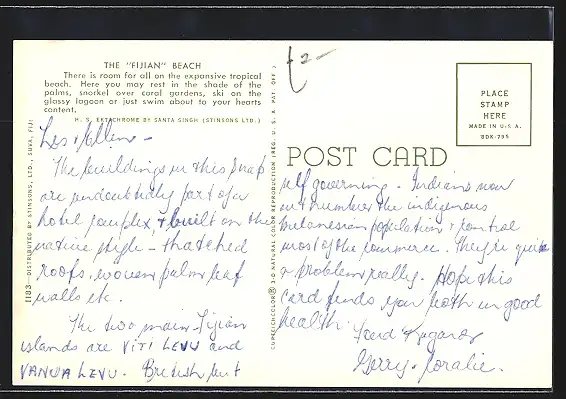 THE "FIJIAN" BEACH
There is room for all on the expansive tropical
beach. Here you may rest in the shade of the
palms, snorkel over coral gardens, ski on the
glassy lagoon or just swim about to your hearts
content.
H. S. EKTACHROME BY SANTA SINGH (STINSONS LTD.)
Les & Ellen -
The buildings in this snap
are undoubtedly part of a
hotel complex, & built on the
native style - thatched
roofs, woven palm leaf
walls etc.
The two main Fijian
islands are VITI LEVU and
VANUA LEVU. British but
1183—DISTRIBUTED BY STINSONS, LTD., SUVA, FIJI
CURTEICHCOLOR® 3-D NATURAL COLOR REPRODUCTION (REG. U. S. A. PAT. OFF.)
£2-
POST CARD
PLACE
STAMP
HERE
MADE IN U.S.A.
8DK-795
self governing. Indians now
outnumber the indigenous
Melanesian population & control
most of the commerce. They're quite
a problem really. Hope this
card finds you both in good
health.
Fond Regards
Gerry & Coralie.